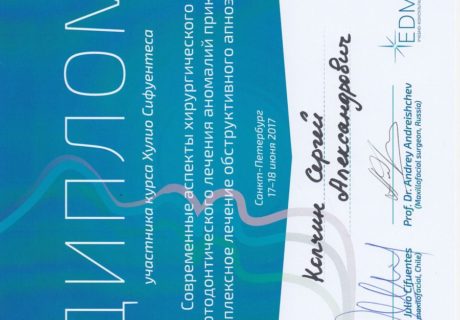 ДИПЛОМ
участника курса Хулио Сифуентеса
Современные аспекты хирургического
тодонтического лечения аномалий при
плексное лечение обструктивного апноэ
Санкт-Петербург
17–18 июня 2017
Сергей
Александрович
Julio Cifuentes
axillofacial, Chile)
Prof. Dr. Andrey Andreishchev
(Maxillofacial surgeon, Russia)
EDM